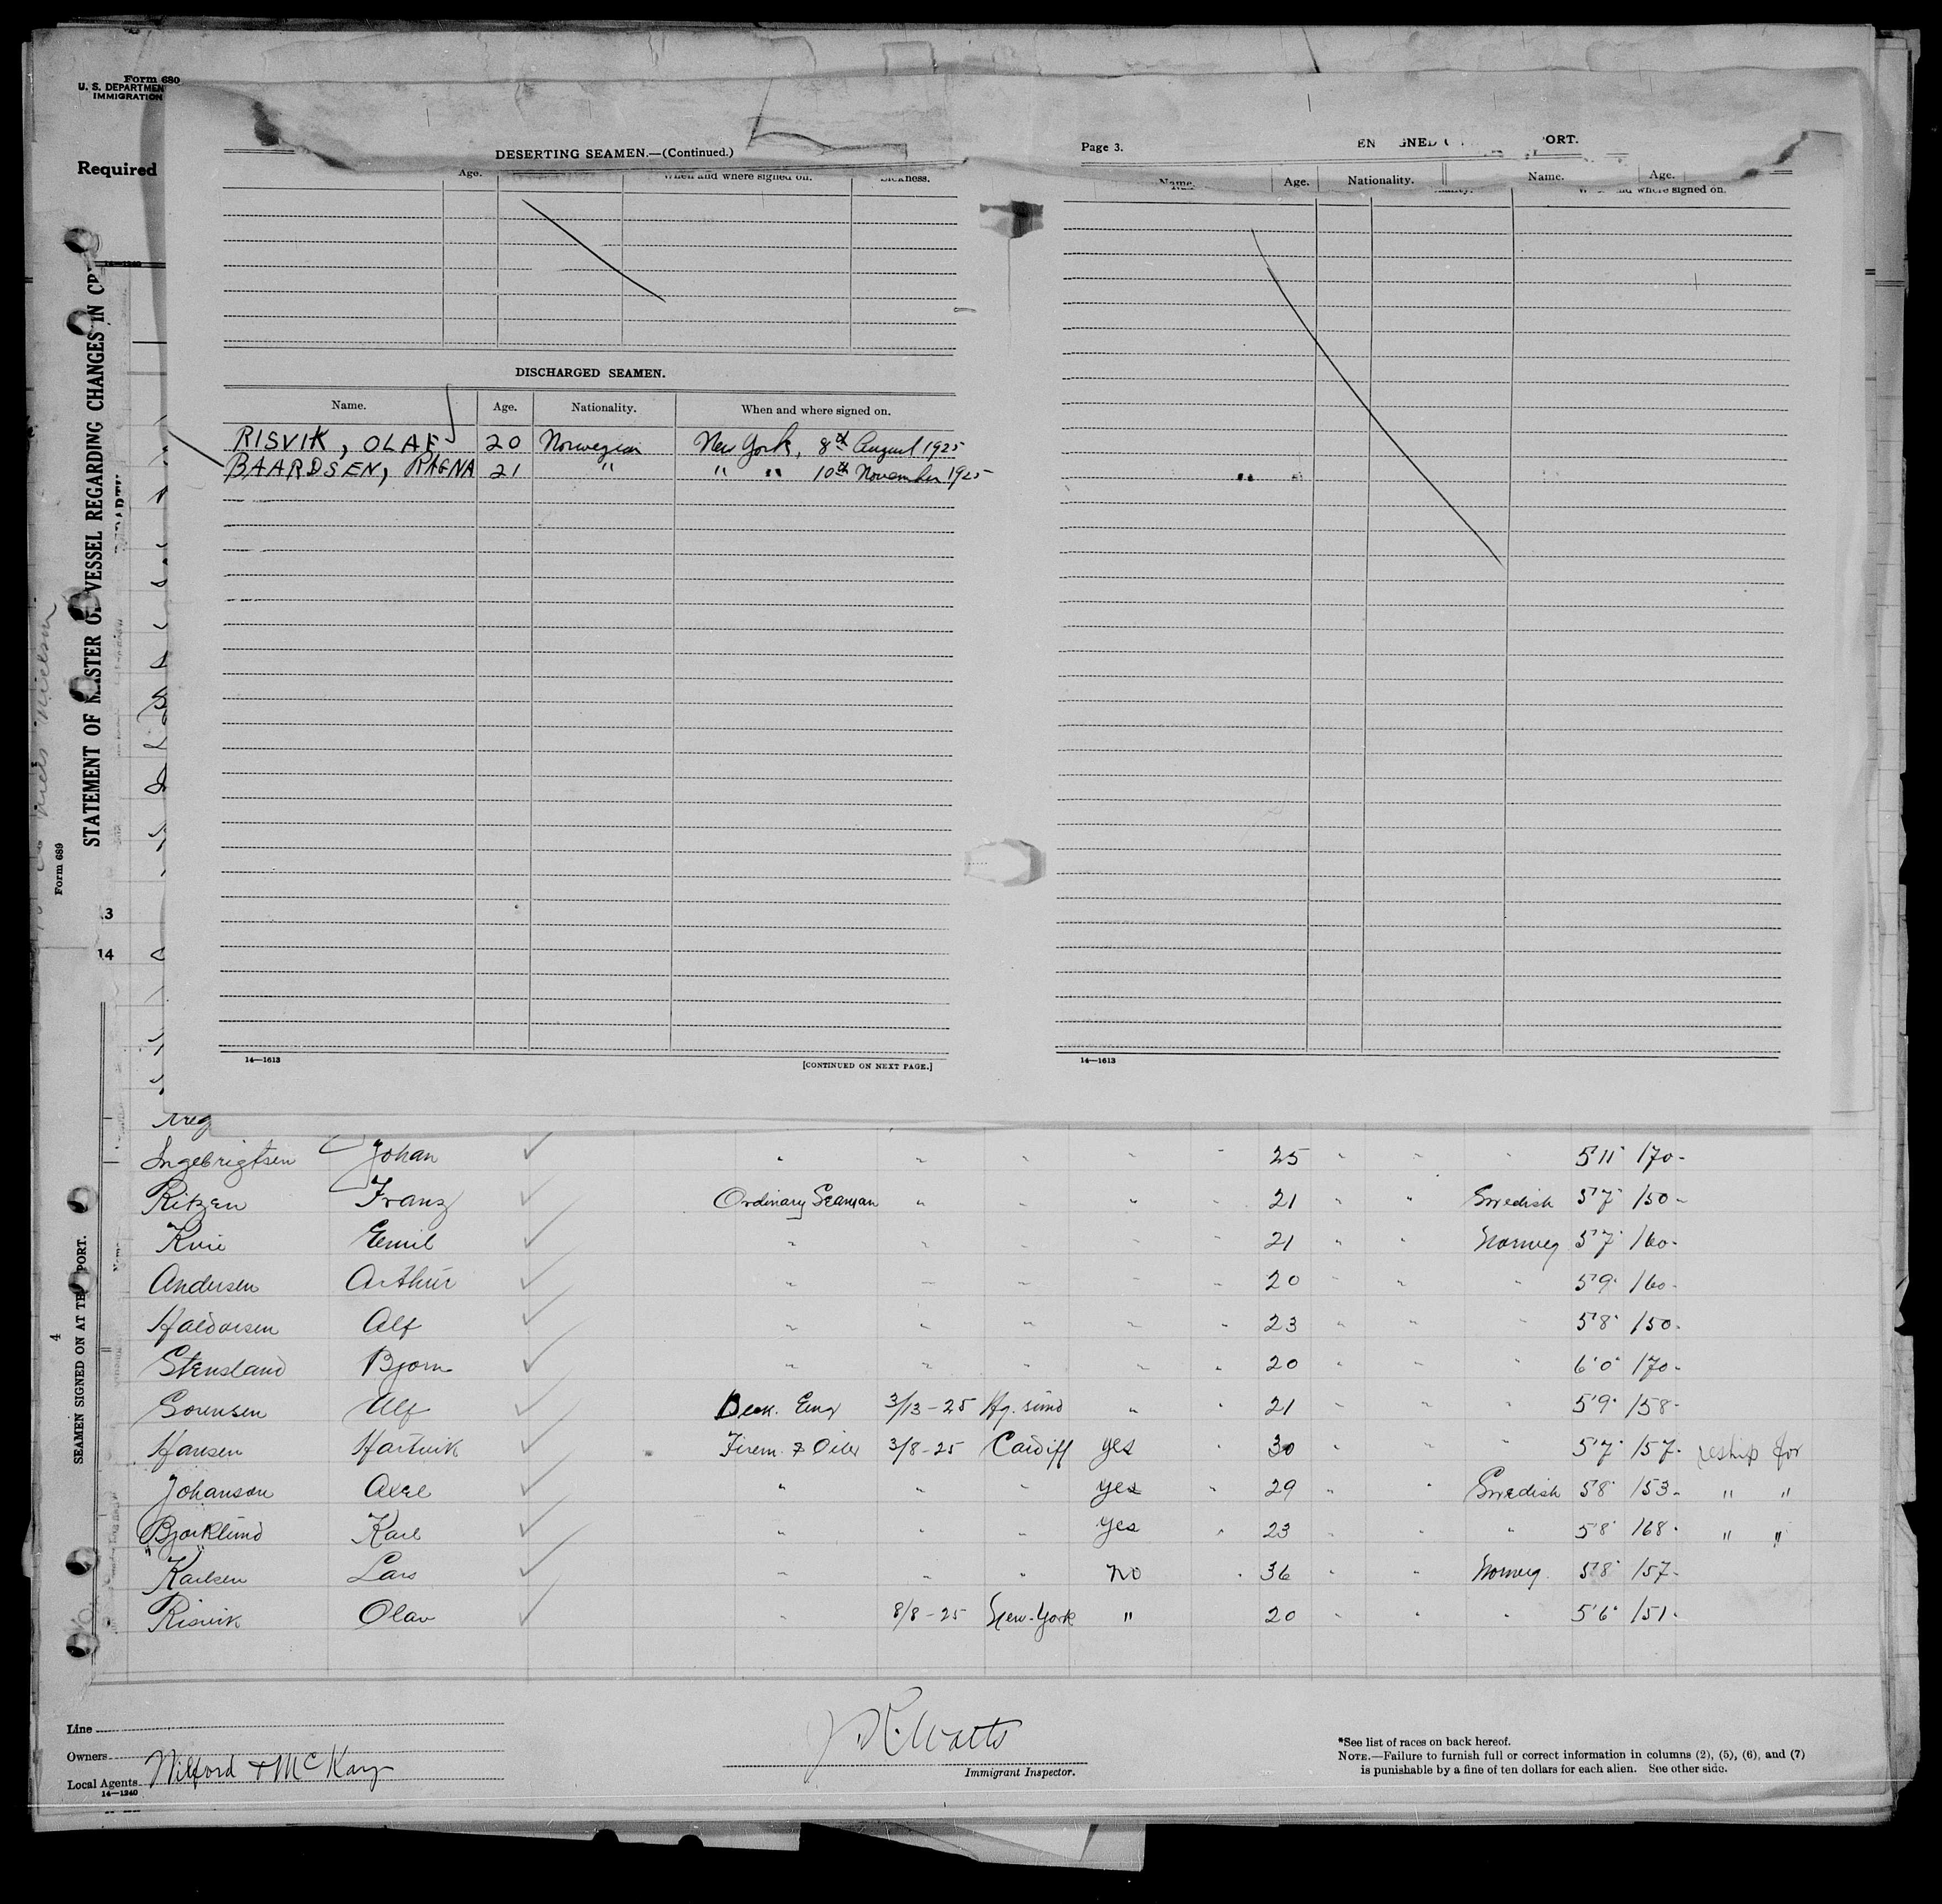 Form 680
U. S. DEPARTMEN
IMMIGRATION
Required
STATEMENT OF MASTER OF VESSEL REGARDING CHANGES IN CR
Form 689
.3
14
4
SEAMEN SIGNED ON AT THE PORT.
DESERTING SEAMEN.—(Continued.)
Age. When and where signed on. Sickness.
DISCHARGED SEAMEN.
Name. Age. Nationality. When and where signed on.
RISVIK, OLAF 20 Norwegian New York, 8th August 1925
BAARDSEN, RAGNA 21 " " " 10th November 1925
14—1613 [CONTINUED ON NEXT PAGE.]
Page 3. EN GNED ORT.
Name. Age. Nationality. Name. Age.
where signed on.
14—1613
Ingebrigtsen Johan " " " " " 25 " " " 5'11" 170-
Ritzen Franz Ordinary Seaman " " " " 21 " " Swedish 5'7" 150-
Kvie Emil " " " " " 21 " " Norweg 5'7" 160-
Andersen Arthur " " " " " 20 " " " 5'9" 160-
Haldorsen Alf " " " " " 23 " " " 5'8" 150-
Stensland Bjorn " " " " " 20 " " " 6'0" 170-
Sorensen Alf Deck. Eng 3/13-25 " " 21 " " " 5'9" 158-
Hansen Hartvik Firem. & Oiler 3/8-25 Cardiff yes " 30 " " " 5'7" 157- reship for
Johanson Axel " " " yes " 29 " " Swedish 5'8" 153- " "
Bjorklund Karl " " " yes " 23 " " " 5'8" 168- " "
Karlsen Lars " " " no " 36 " " Norweg. 5'8" 157-
Risvik Olav " 8/8-25 New-York " 20 " " " 5'6" 151-
Line
Owners
Local Agents Wilford & McKay
14—1240
J. R. Watts
Immigrant Inspector.
*See list of races on back hereof.
NOTE.—Failure to furnish full or correct information in columns (2), (5), (6), and (7)
is punishable by a fine of ten dollars for each alien. See other side.